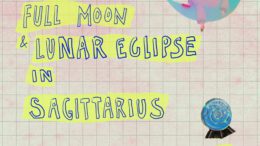 FULL MOON
& LUNAR ECLIPSE
IN
SAGITTARIUS